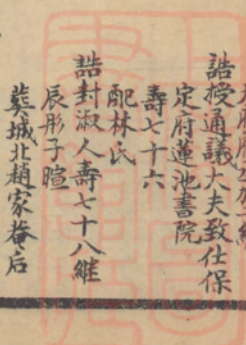 誥授通議大夫致仕保
定府蓮池書院
壽七十六
配林氏
誥封淑人壽七十八繼
辰彤子暄
葬城北趙家菴后